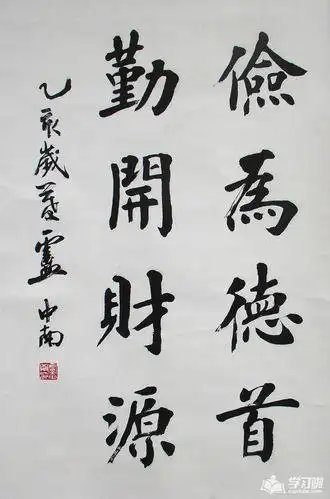 儉為德首
勤開財源
乙亥歲
中南
学习啦